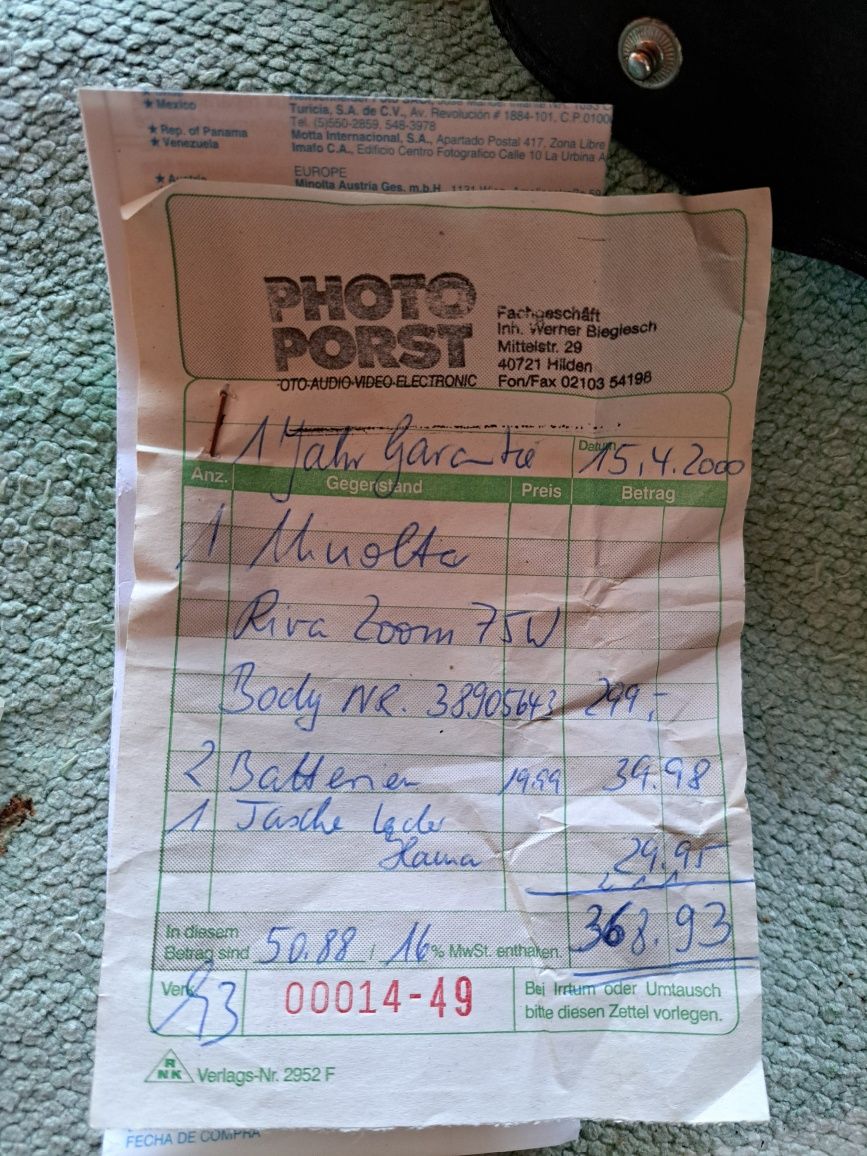 ★ Mexico
Turicia, S.A. de C.V., Av. Revolución # 1884-101, C.P.0100
Tel. (5)550-2859, 548-3978
★ Rep. of Panama
Motta Internacional, S.A., Apartado Postal 417, Zona Libre
★ Venezuela
Imafo C.A., Edificio Centro Fotografico Calle 10 La Urbina A
EUROPE
★ Austria
Minolta Austria Ges. m.b.H.
PHOTO
PORST
OTO-AUDIO-VIDEO-ELECTRONIC
Fachgeschäft
Inh. Werner Bieglesch
Mittelstr. 29
40721 Hilden
Fon/Fax 02103 54198
1 Jahr Garantie
Datum 15.4.2000
Anz. Gegenstand Preis Betrag
1 Minolta
Riva Zoom 75W
Body NR. 38905643 299,-
2 Batterien 19.99 39.98
1 Tasche Leder
Hama 29.95
368.93
In diesem
Betrag sind 50.88 / 16 % MwSt. enthalten.
Verk.
00014-49
Bei Irrtum oder Umtausch
bitte diesen Zettel vorlegen.
RNK Verlags-Nr. 2952 F
FECHA DE COMPRA